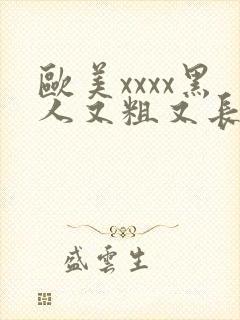 歐美xxxx黑
人又粗又長
盛雲生